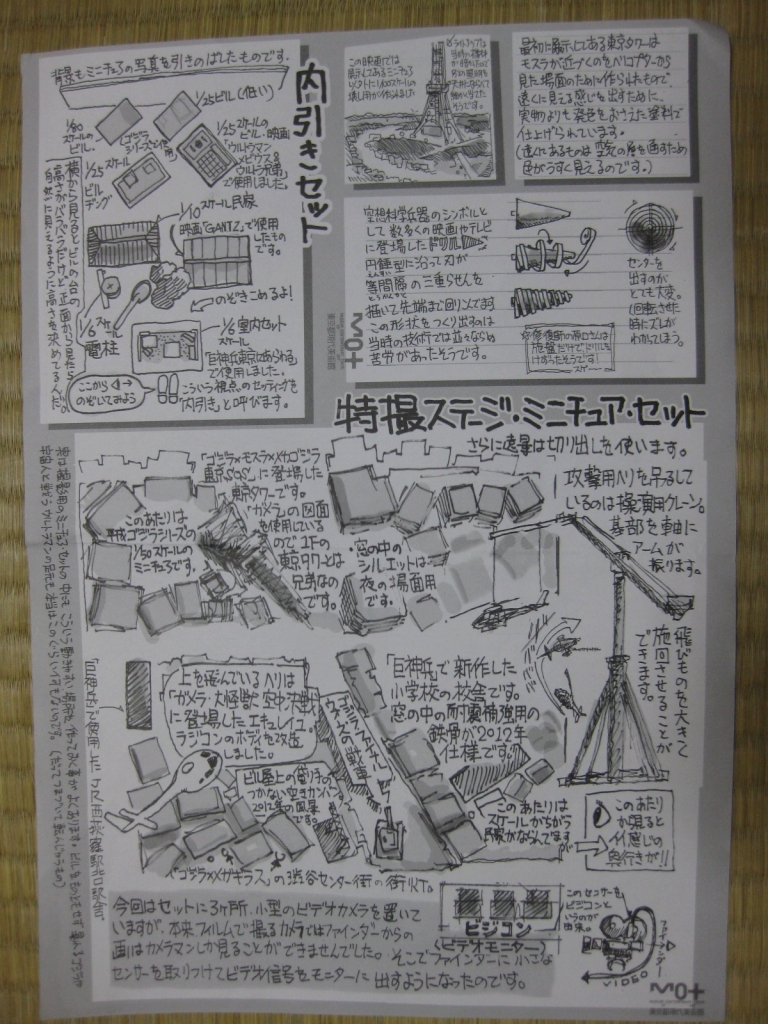 背景もミニチュアの写真を引きのばしたものです。
内引きセット
1/25ビル(低い)
1/80
スケールの
ビル。
(ゴジラ
シリーズで使用)
1/25スケールの
ビル・映画
「ウルトラマン
メビウス&
ウルトラ兄弟」
で使用しました。
1/25スケール
ビル
ディング
1/10スケール民家
映画「GANTZ」で使用
したもの
です。
のぞきこめるよ!
1/6スケール
電柱
1/6室内セット
スケール
「巨神兵東京にあらわる」
で使用しました。
こういう視点のセッティングを
「内引き」と呼びます。
ここから
のぞいてみよう
横から見るとビルの台の
高さがバラバラだけど正面から見たら
自然に見えるように高さを決めてるんだ。
この映画では
展示してあるミニチュア
以外に1/600スケールの
壊し用が作られました
ライトアップは
そうです。
最初に展示してある東京タワーは
モスラが近づくのをヘリコプターから
見た場面のために作られたもので
遠くに見える感じを出すために、
実物よりも発色をおさえた塗料で
仕上げられています。
(遠くにあるものは空気の層を通すため
色がうすく見えるのです。)
空想科学兵器のシンボルと
して数多くの映画やテレビ
に登場したドリル
円錐型に沿って刃が
等間隔の三重らせんを
描いて先端まで回り込んでます
この形状をつくり出すのは
当時の技術では並々ならぬ
苦労があったそうです。
センターを
出すのが
とても大変。
1回転させた
時にズレが
わかってしまう。
旋盤だけでドリルを
けずったそうです!
スゲー
東京都現代美術館
特撮ステージ・ミニチュア・セット
さらに遠景は切り出しを使います。
「ゴジラ×モスラ×メカゴジラ
東京SOS」に登場した
東京タワーです。
「ガメラ」の図面
を使用している
ので1Fの
東京タワーとは
兄弟なの
です。
このあたりは
平成ゴジラシリーズの
1/50スケールの
ミニチュアです。
窓の中の
シルエットは
夜の場面用
です。
攻撃用ヘリを吊るして
いるのは操演用クレーン。
基部を軸に
アームが
振ります。
飛びものを大きく
旋回させることが
できます。
上を飛んでいるヘリは
「ガメラ・大怪獣空中決戦」
に登場したエキュレイユ
ラジコンのボディを改造
しました。
「巨神兵」で新作した
小学校の校舎です。
窓の中の耐震補強用の
鉄骨が2012年
仕様です。
ビル屋上の借り手の
つかない空きカンバン。
2012年の風景
です。
このあたりは
スケールちがいの
民家がならんでます
このあたり
から見ると
イイ感じの
奥行きが!!
「ゴジラ×メガギラス」の渋谷センター街の街灯。
今回はセットに3ヶ所、小型のビデオカメラを置いて
いますが、本来フィルムで撮るカメラではファインダーからの
画はカメラマンしか見ることができませんでした。そこでファインダーに小さな
センサーを取りつけてビデオ信号をモニターに出すようになったのです。
ビジコン
(ビデオモニター)
このセンサーを
ビジコンと
いうのが
由来。
ファインダー
VIDEO
東京都現代美術館